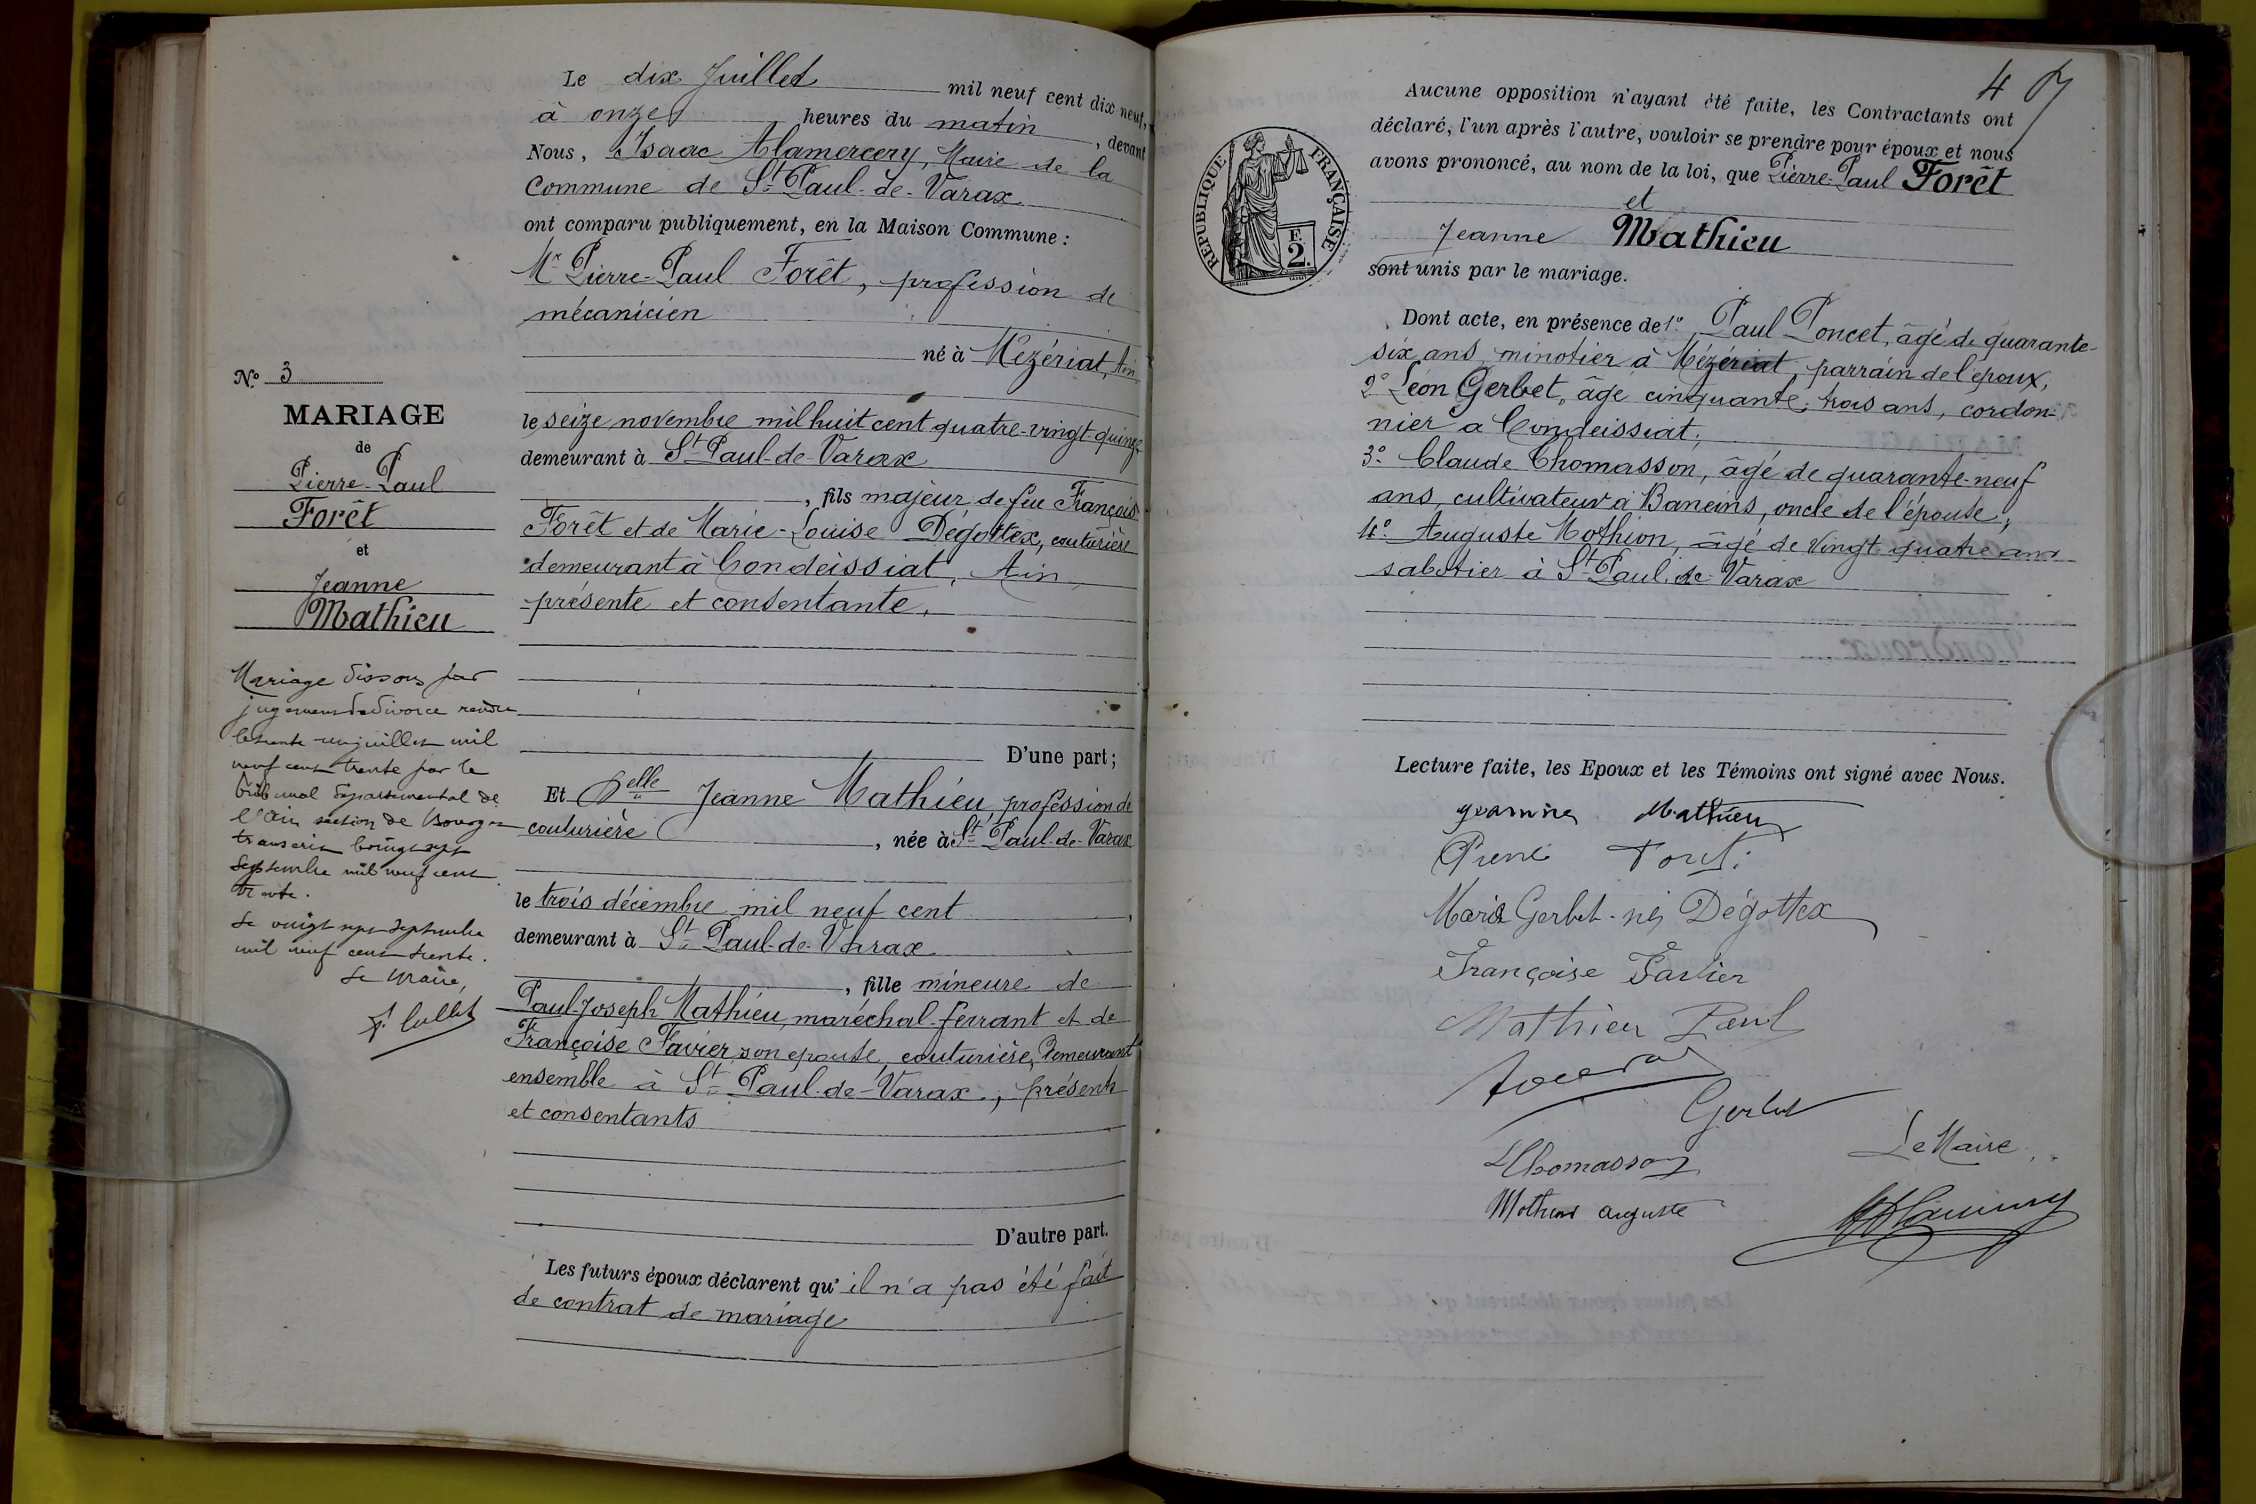 Le dix Juillet mil neuf cent dix neuf,
à onze heures du matin, devant
Nous, Isaac Alamercery, Maire de la
Commune de St Paul-de-Varax
ont comparu publiquement, en la Maison Commune :
Mr Pierre-Paul Forêt, profession de
mécanicien
né à Mézériat, Ain
le seize novembre mil huit cent quatre-vingt-quinze
demeurant à St Paul-de-Varax
, fils majeur de feu François
Forêt et de Marie-Louise Dégottex, couturière
demeurant à Condeissiat, Ain
présente et consentante.
D'une part ;
Et Delle Jeanne Mathieu, profession de
couturière, née à St Paul-de-Varax
le trois décembre mil neuf cent
demeurant à St Paul-de-Varax
, fille mineure de
Paul-Joseph Mathieu, maréchal-ferrant et de
Françoise Favier son épouse, couturière, demeurant
ensemble à St Paul-de-Varax, présents
et consentants
D'autre part.
Les futurs époux déclarent qu'il n'a pas été fait
de contrat de mariage
No 3
MARIAGE
de
Pierre-Paul
Forêt
et
Jeanne
Mathieu
Mariage dissous par
jugement de divorce rendu
le trente un juillet mil
neuf cent trente par le
tribunal départemental de
l'Ain section de Bourg
transcrit le vingt sept
septembre mil neuf cent
trente.
Le vingt sept septembre
mil neuf cent trente.
Le Maire,
47
Aucune opposition n'ayant été faite, les Contractants ont
déclaré, l'un après l'autre, vouloir se prendre pour époux et nous
avons prononcé, au nom de la loi, que Pierre-Paul Forêt
et
Jeanne Mathieu
sont unis par le mariage.
RÉPUBLIQUE FRANÇAISE
F.
2.
Dont acte, en présence de 1° Paul Poncet, âgé de quarante-
six ans, minotier à Mézériat, parrain de l'époux,
2° Léon Gerbet, âgé cinquante-trois ans, cordon-
nier à Condeissiat;
3° Claude Thomasson, âgé de quarante-neuf
ans, cultivateur à Baneins, oncle de l'épouse,
4° Auguste Mothion, âgé de vingt quatre ans
sabotier à St Paul-de-Varax
Lecture faite, les Epoux et les Témoins ont signé avec Nous.
Jeanne Mathieu
Pierre Forêt
Marie Gerbet née Dégottex
Françoise Favier
Mathieu Paul
Gerbet
Thomasson
Le Maire
Mothion Auguste